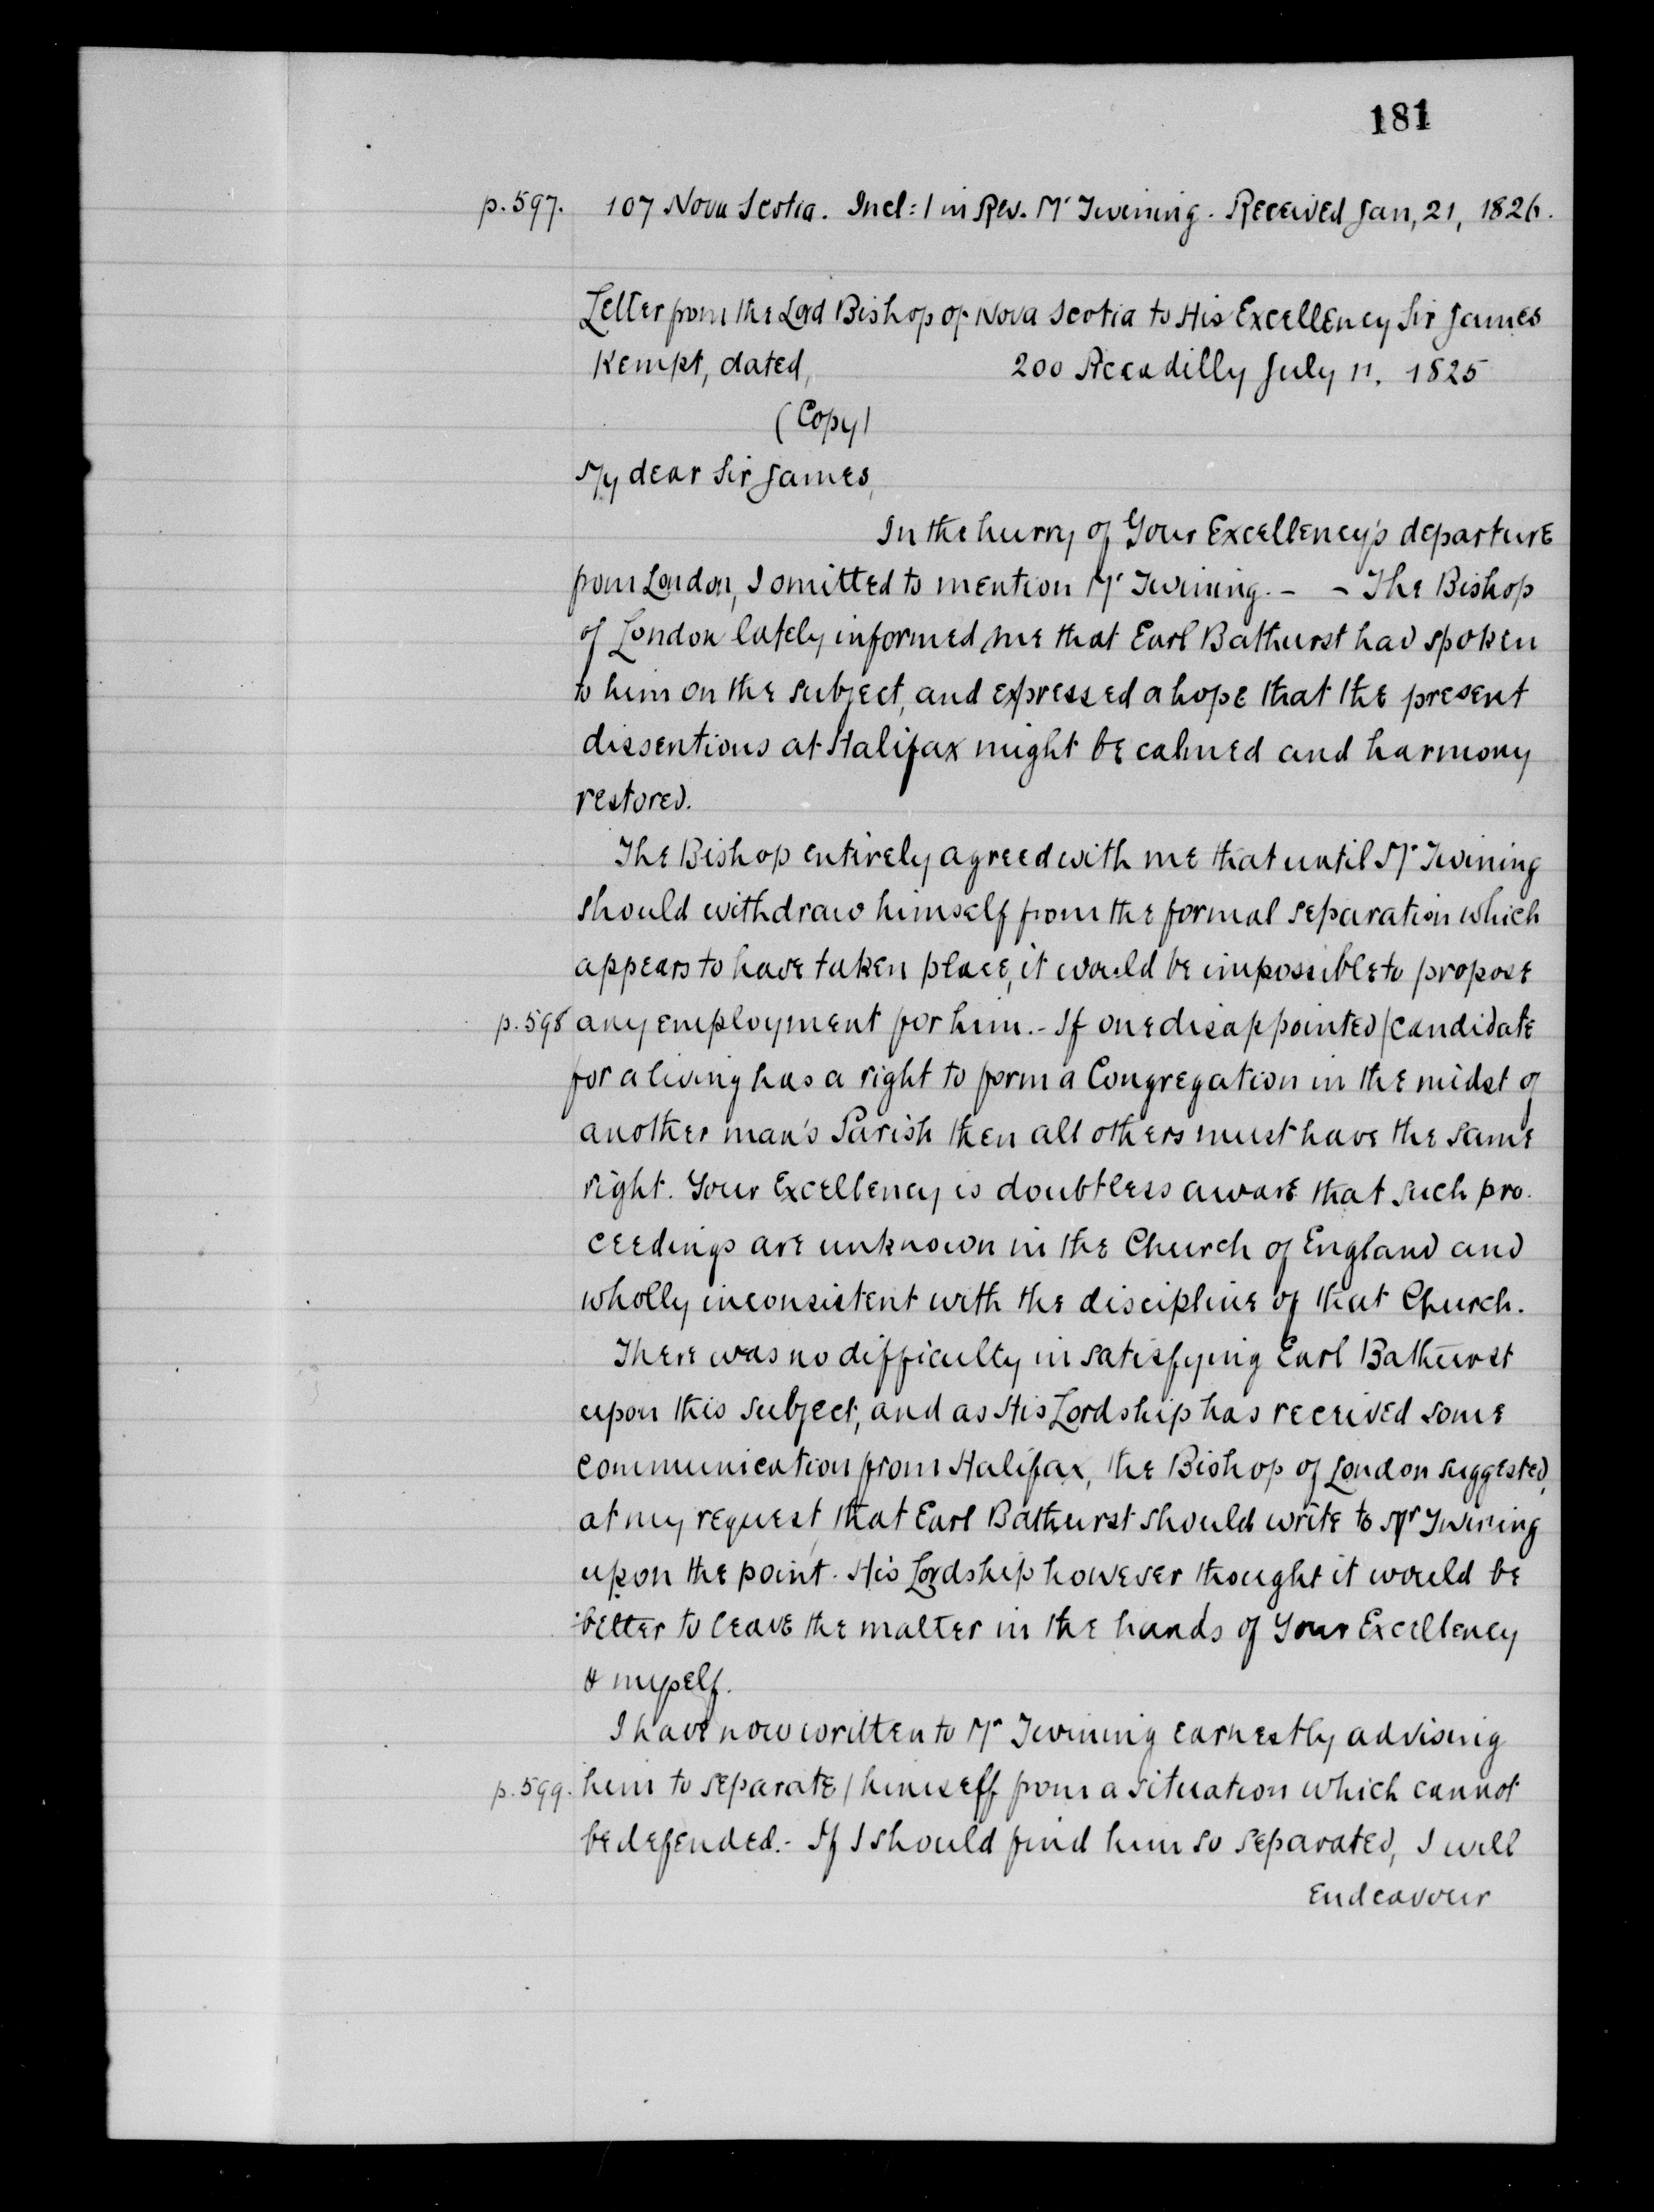 181
p. 597. 107 Nova Scotia. Incl: 1 in Rev. Mr Twining. Received Jan, 21, 1826.
Letter from the Lord Bishop of Nova Scotia to His Excellency Sir James
Kempt, dated, 200 Piccadilly July 11. 1825
(Copy)
My dear Sir James,
In the hurry of Your Excellency's departure
from London, I omitted to mention Mr Twining. - - The Bishop
of London lately informed me that Earl Bathurst had spoken
to him on the subject, and expressed a hope that the present
dissentions at Halifax might be calmed and harmony
restored.
The Bishop entirely agreed with me that until Mr Twining
should withdraw himself from the formal separation which
appears to have taken place, it would be impossible to propose
p. 598 any employment for him. - If one disappointed / candidate
for a living has a right to form a Congregation in the midst of
another man's Parish then all others must have the same
right. Your Excellency is doubtless aware that such pro-
ceedings are unknown in the Church of England and
wholly inconsistent with the discipline of that Church.
There was no difficulty in satisfying Earl Bathurst
upon this subject, and as His Lordship has received some
communication from Halifax, the Bishop of London suggested,
at my request, that Earl Bathurst should write to Mr Twining
upon the point. His Lordship however thought it would be
better to leave the matter in the hands of Your Excellency
& myself.
I have now written to Mr Twining earnestly advising
p. 599. him to separate / himself from a situation which cannot
be defended. - If I should find him so separated, I will
endeavour